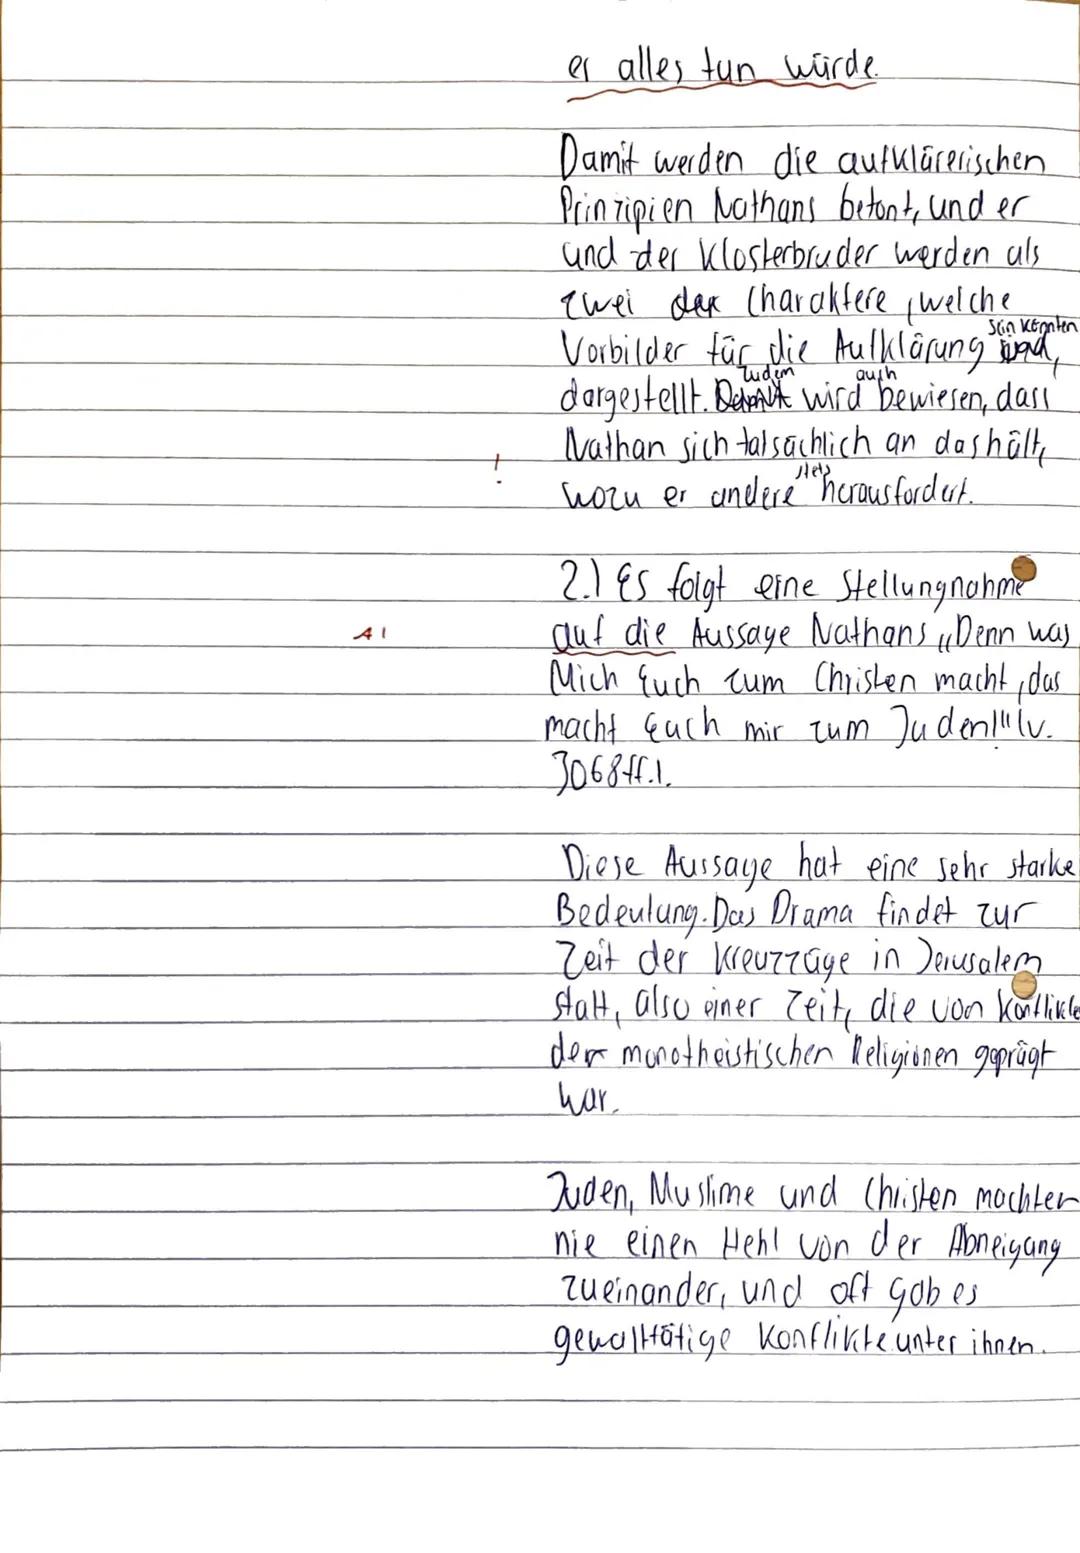 er alles tun würde.
Damit werden die aufklärerischen
Prinzipien Nathans betont, und er
und der Klosterbruder werden als
zwei der Charaktere, welche
Vorbilder für die Aufklärung sein könnten,
dargestellt. Zudem wird auch bewiesen, dass
! Nathan sich tatsächlich an das hält,
wozu er andere stets herausfordert.
2.) Es folgt eine Stellungnahme
A1 auf die Aussage Nathans „Denn was
Mich Euch zum Christen macht, das
macht Euch mir zum Juden!" (v.
3068ff.).
Diese Aussage hat eine sehr starke
Bedeutung. Das Drama findet zur
Zeit der Kreuzzüge in Jerusalem
statt, also einer Zeit, die von Konflikte
der monotheistischen Religionen geprägt
war.
Juden, Muslime und Christen machten
nie einen Hehl von der Abneigung
zueinander, und oft gab es
gewalttätige Konflikte unter ihnen.